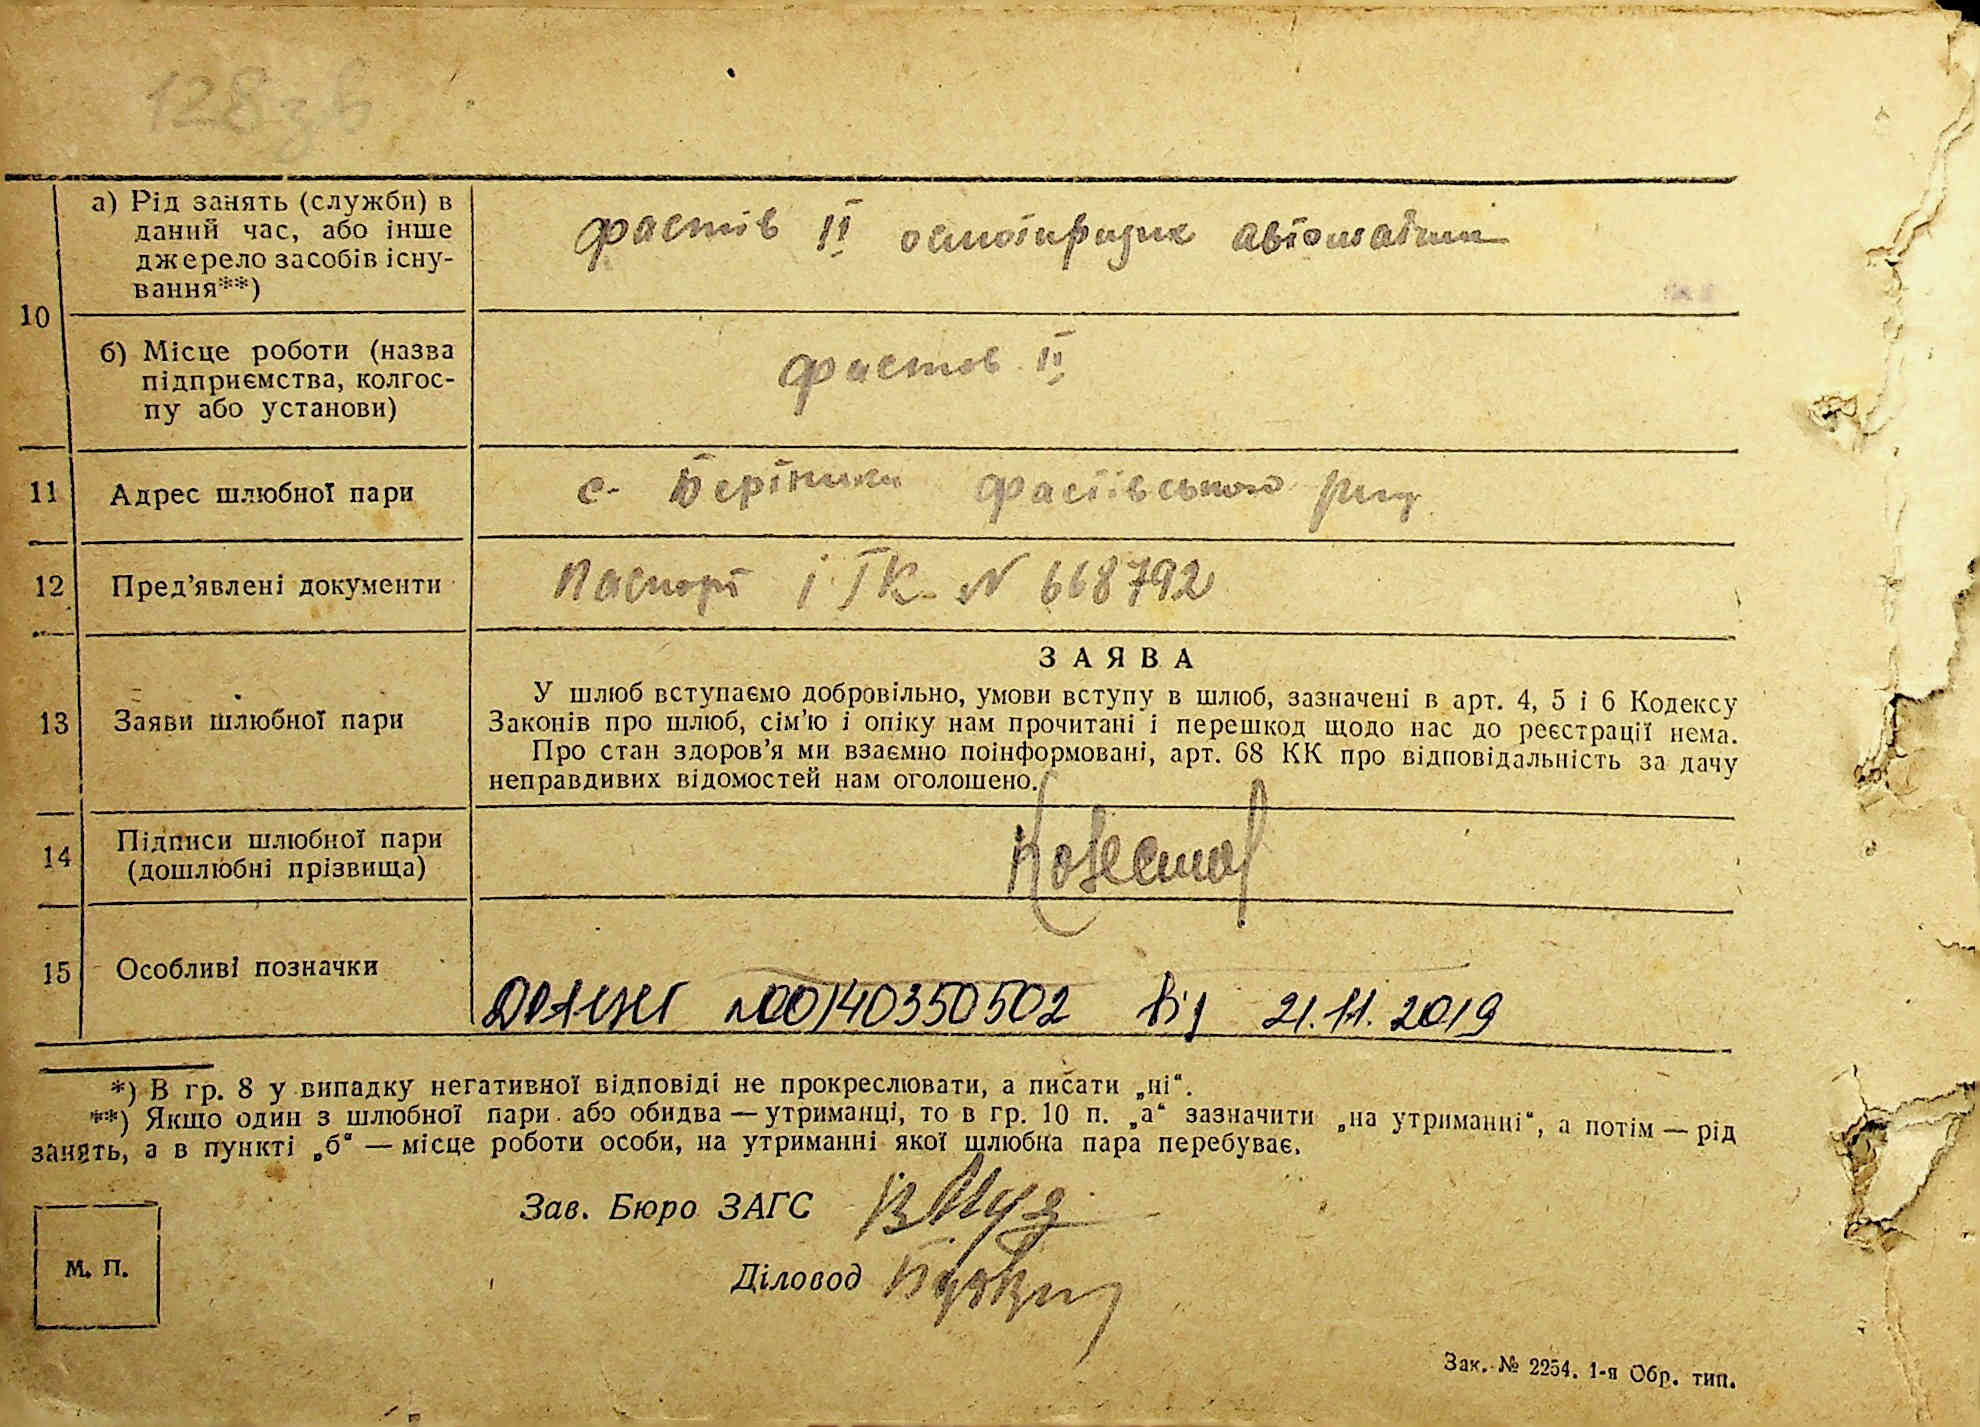 128зв
а) Рід занять (служби) в
даний час, або інше
джерело засобів існу-
вання**)
Фастів ІІ автоматчик
10
б) Місце роботи (назва
підприємства, колгос-
пу або установи)
Фастов ІІ
11 Адрес шлюбної пари
с. Фастівського
12 Пред’явлені документи
Паспорт І ГК N 668792
13 Заяви шлюбної пари
ЗАЯВА
У шлюб вступаємо добровільно, умови вступу в шлюб, зазначені в арт. 4, 5 і 6 Кодексу
Законів про шлюб, сім’ю і опіку нам прочитані і перешкод щодо нас до реєстрації нема.
Про стан здоров’я ми взаємно поінформовані, арт. 68 КК про відповідальність за дачу
неправдивих відомостей нам оголошено.
14 Підписи шлюбної пари
(дошлюбні прізвища)
15 Особливі позначки
00140350502 від 21.11.2019
*) В гр. 8 у випадку негативної відповіді не прокреслювати, а писати „ні“.
**) Якщо один з шлюбної пари або обидва — утриманці, то в гр. 10 п. „а“ зазначити „на утриманні“, а потім — рід
занять, а в пункті „б“ — місце роботи особи, на утриманні якої шлюбна пара перебуває.
Зав. Бюро ЗАГС
М. П.
Діловод
Зак. № 2254. 1-я Обр. тип.